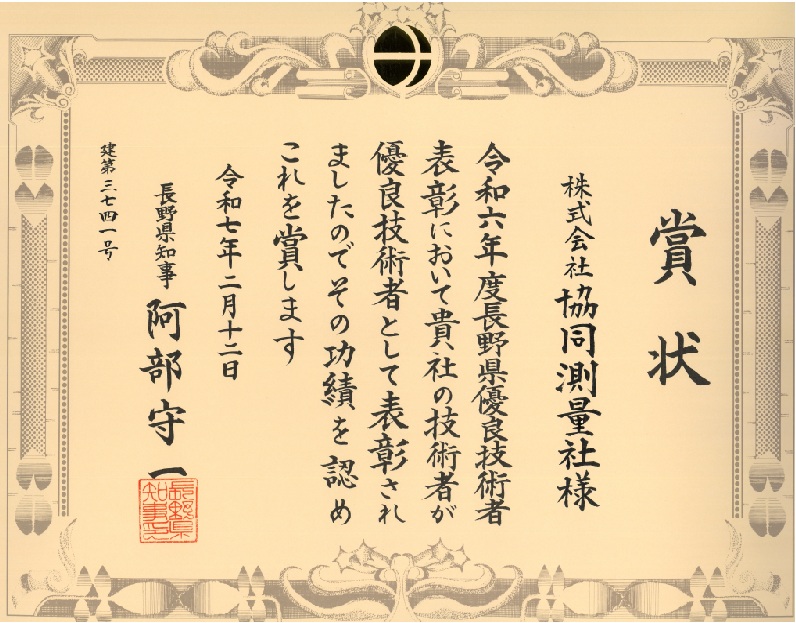 賞状
株式会社協同測量社様
令和六年度長野県優良技術者
表彰において貴社の技術者が
優良技術者として表彰され
ましたのでその功績を認め
これを賞します
令和七年二月十二日
長野県知事 阿部守一
長野県知事之印
建第三七四一号